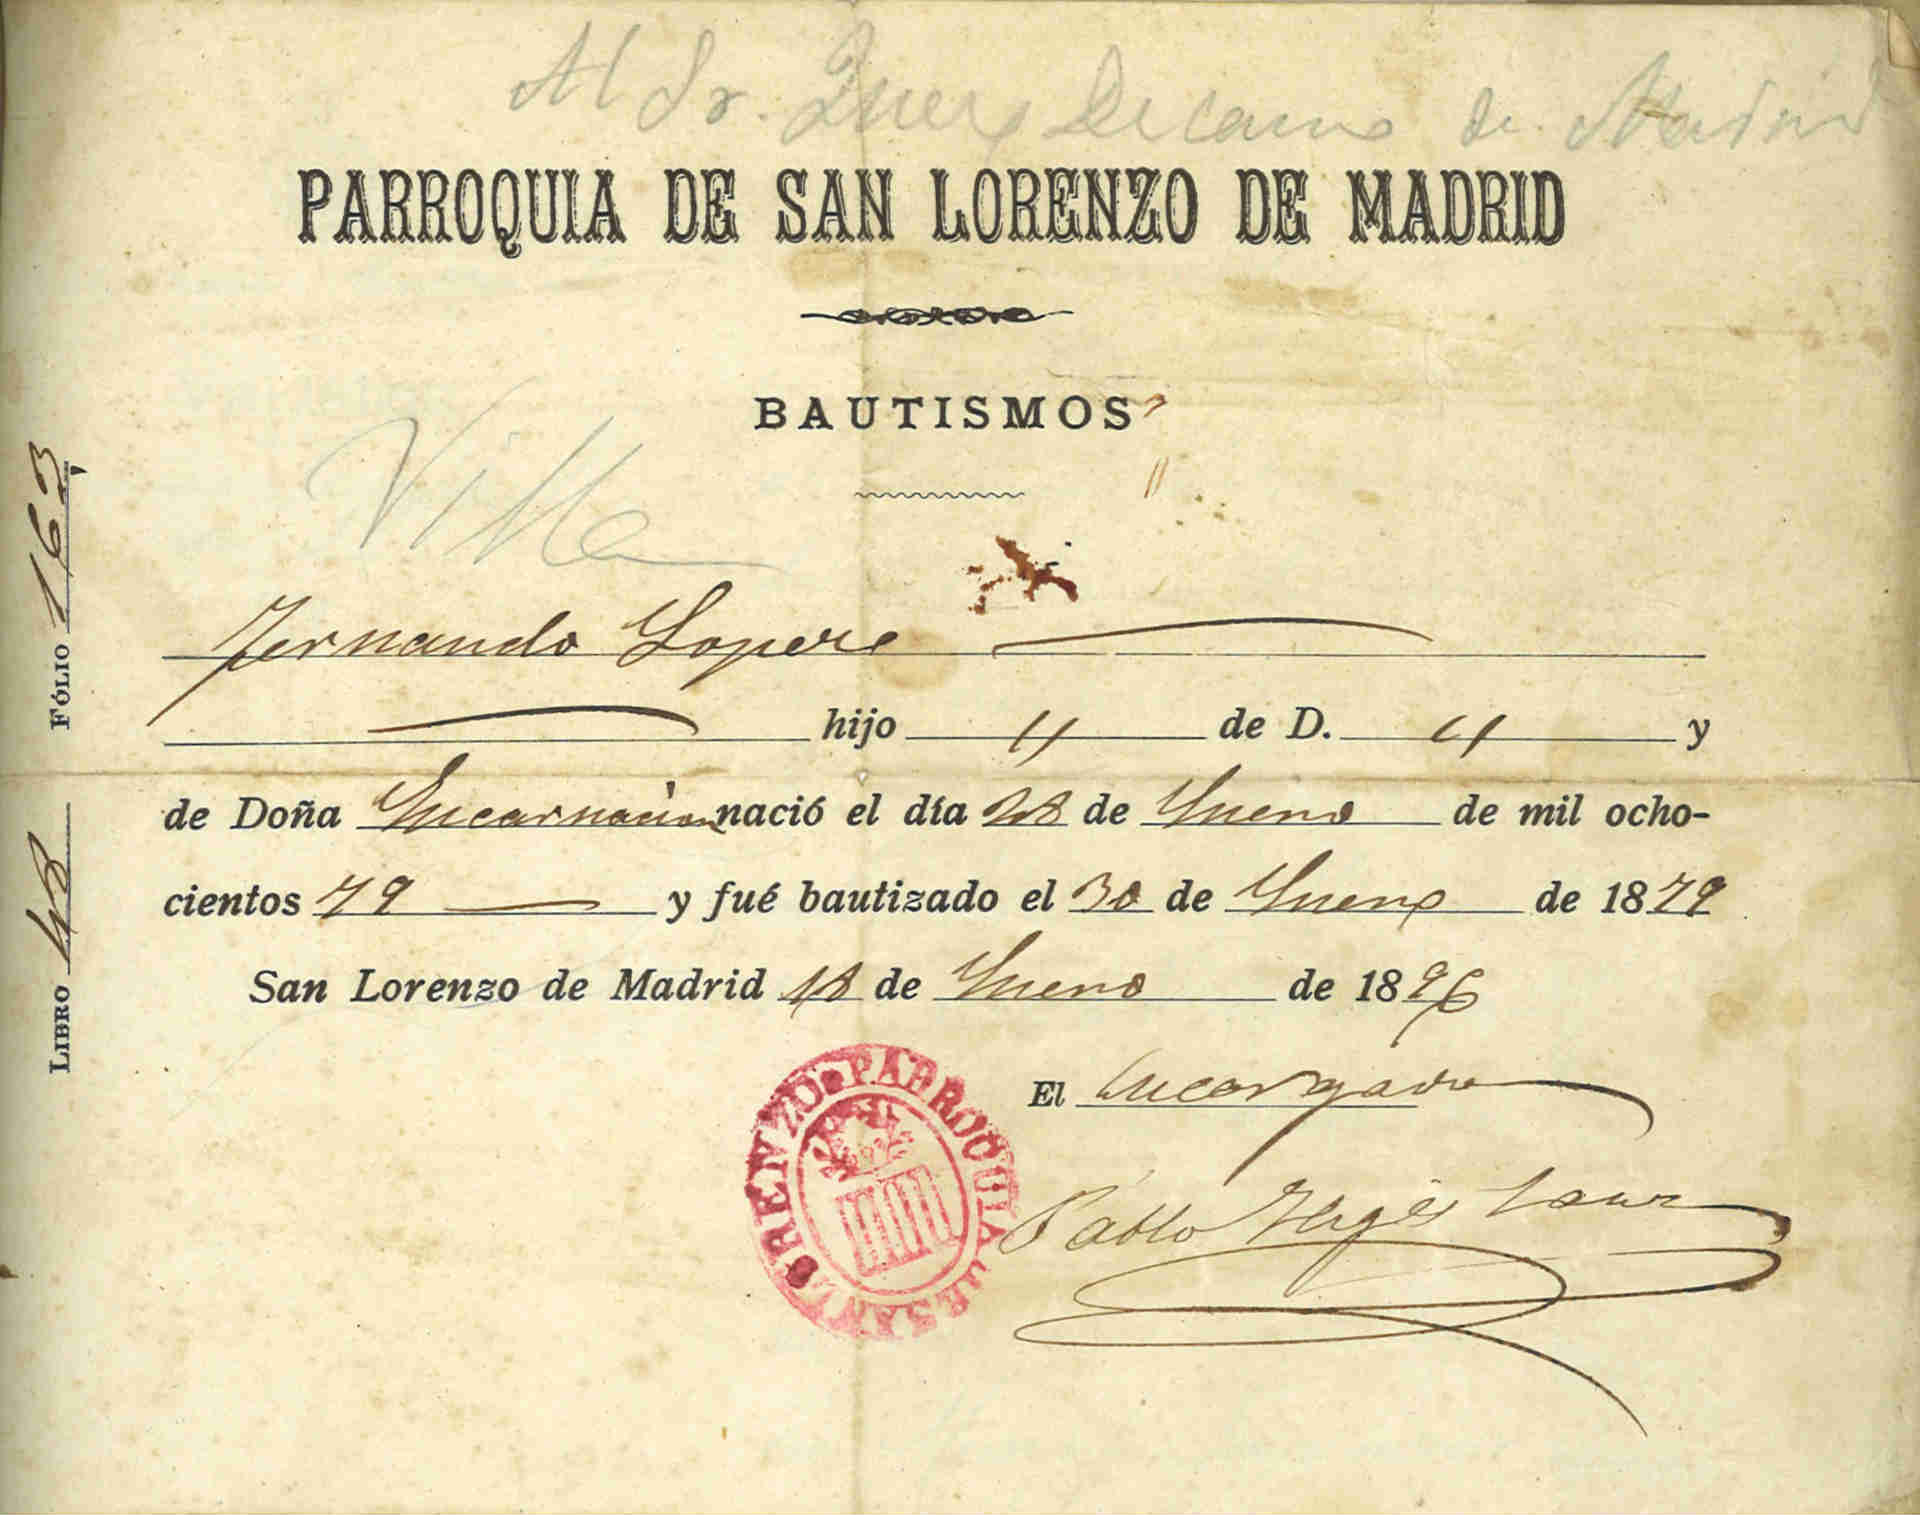 Al Sr. Juez Decano de Madrid
PARROQUIA DE SAN LORENZO DE MADRID
BAUTISMOS
Villa
Fernando Lopere
hijo " de D. " y
de Doña Encarnación nació el día 28 de Enero de mil ocho-
cientos 79 y fué bautizado el 30 de Enero de 1879
San Lorenzo de Madrid 18 de Enero de 1896
El Encargado
Pablo
PARROQUIA DE SAN LORENZO
FÓLIO 163
LIBRO 48